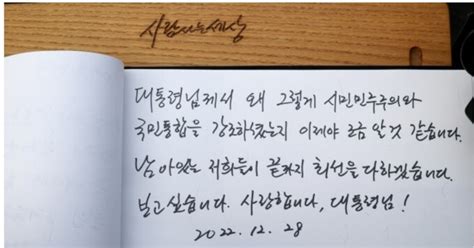 사람사는세상
대통령님께서 왜 그렇게 시민민주주의와
국민통합을 강조하셨는지 이제야 조금 알 것 같습니다.
남아있는 저희들이 끝까지 최선을 다하겠습니다.
보고싶습니다. 사랑합니다, 대통령님!
2022. 12. 28